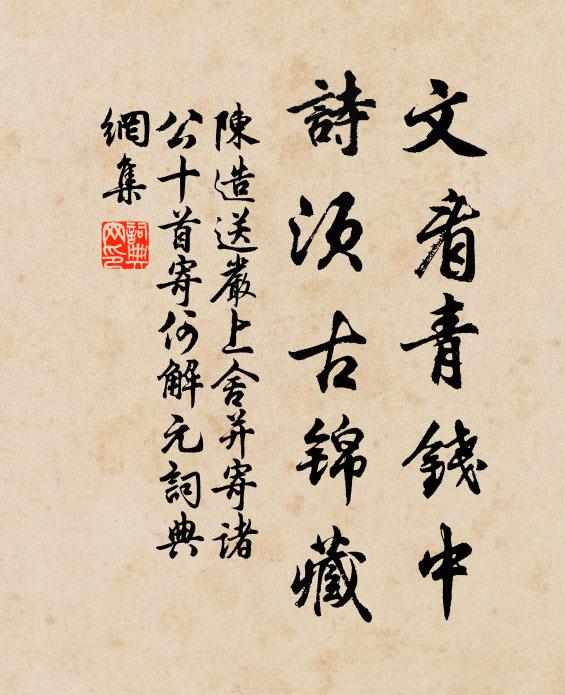 文看青錢中
詩須古錦藏
陳造送嚴上舍并寄諸
公十首寄何解元詞典
網集
詞典網印